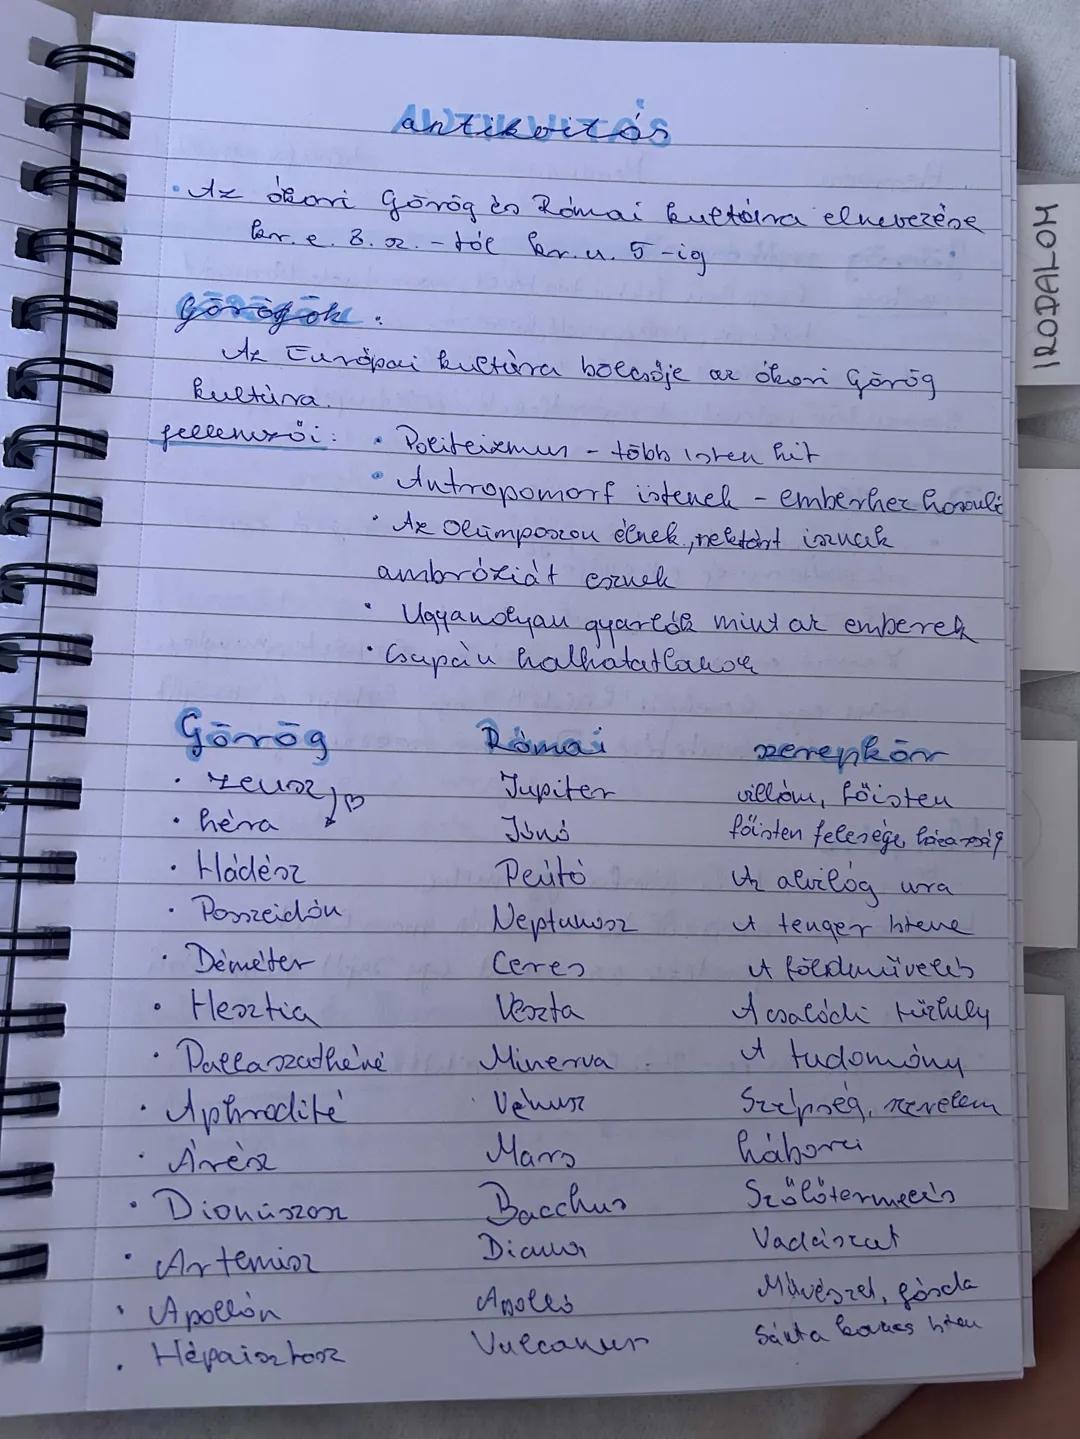 antikvitás
• Az ókori Görög és Római kultúra elnevezése
kr. e. 8. sz. - tól kr. u. 5 -ig
Görögök:
Az Európai kultúra bölcsője az ókori Görög
kultúra.
jellemzői: • Politeizmus - több isten hit
• Antropomorf istenek - emberhez hasonló
• Az Olümposzon élnek, nektárt isznak
ambróziát esznek
• Ugyanolyan gyarlók mint az emberek
• Csupán halhatatlanok
Görög Római szerepkör
• Zeusz Jupiter villám, főisten
• héra Júnó főisten felesége, házasság
• Hádész Plútó Az alvilág ura
• Poszeidón Neptunusz A tenger istene
• Démétér Ceres A földművelés
• Hesztia Veszta A családi tűzhely
• Pallaszathéné Minerva A tudomány
• Aphrodité Vénusz Szépség, szerelem
• Árész Mars háború
• Dionüszosz Bacchus Szőlőtermelés
• Artemisz Diana Vadászat
• Apollón Apolló Művészet, jósda
• Hépaisztosz Vulcanus Sánta kovács isten
IRODALOM